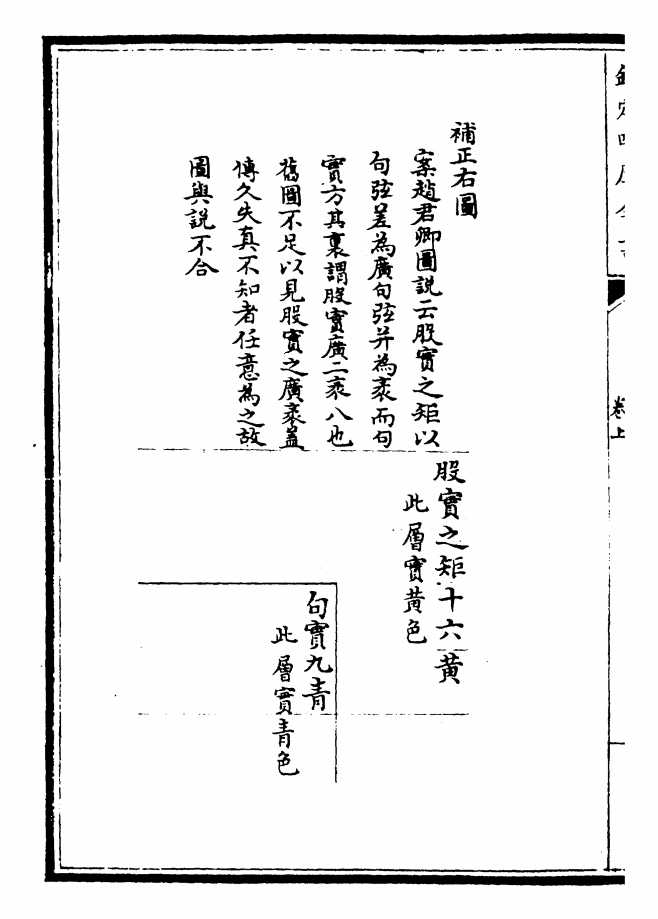 卷上
補正右圖
案趙君卿圖説云股實之矩以
句弦差為廣句弦并為袤而句
實方其裏謂股實廣二袤八也
舊圖不足以見股實之廣袤蓋
傳久失真不知者任意為之故
圖與説不合
股實之矩十六黄
此層實黄色
句實九青
此層實青色